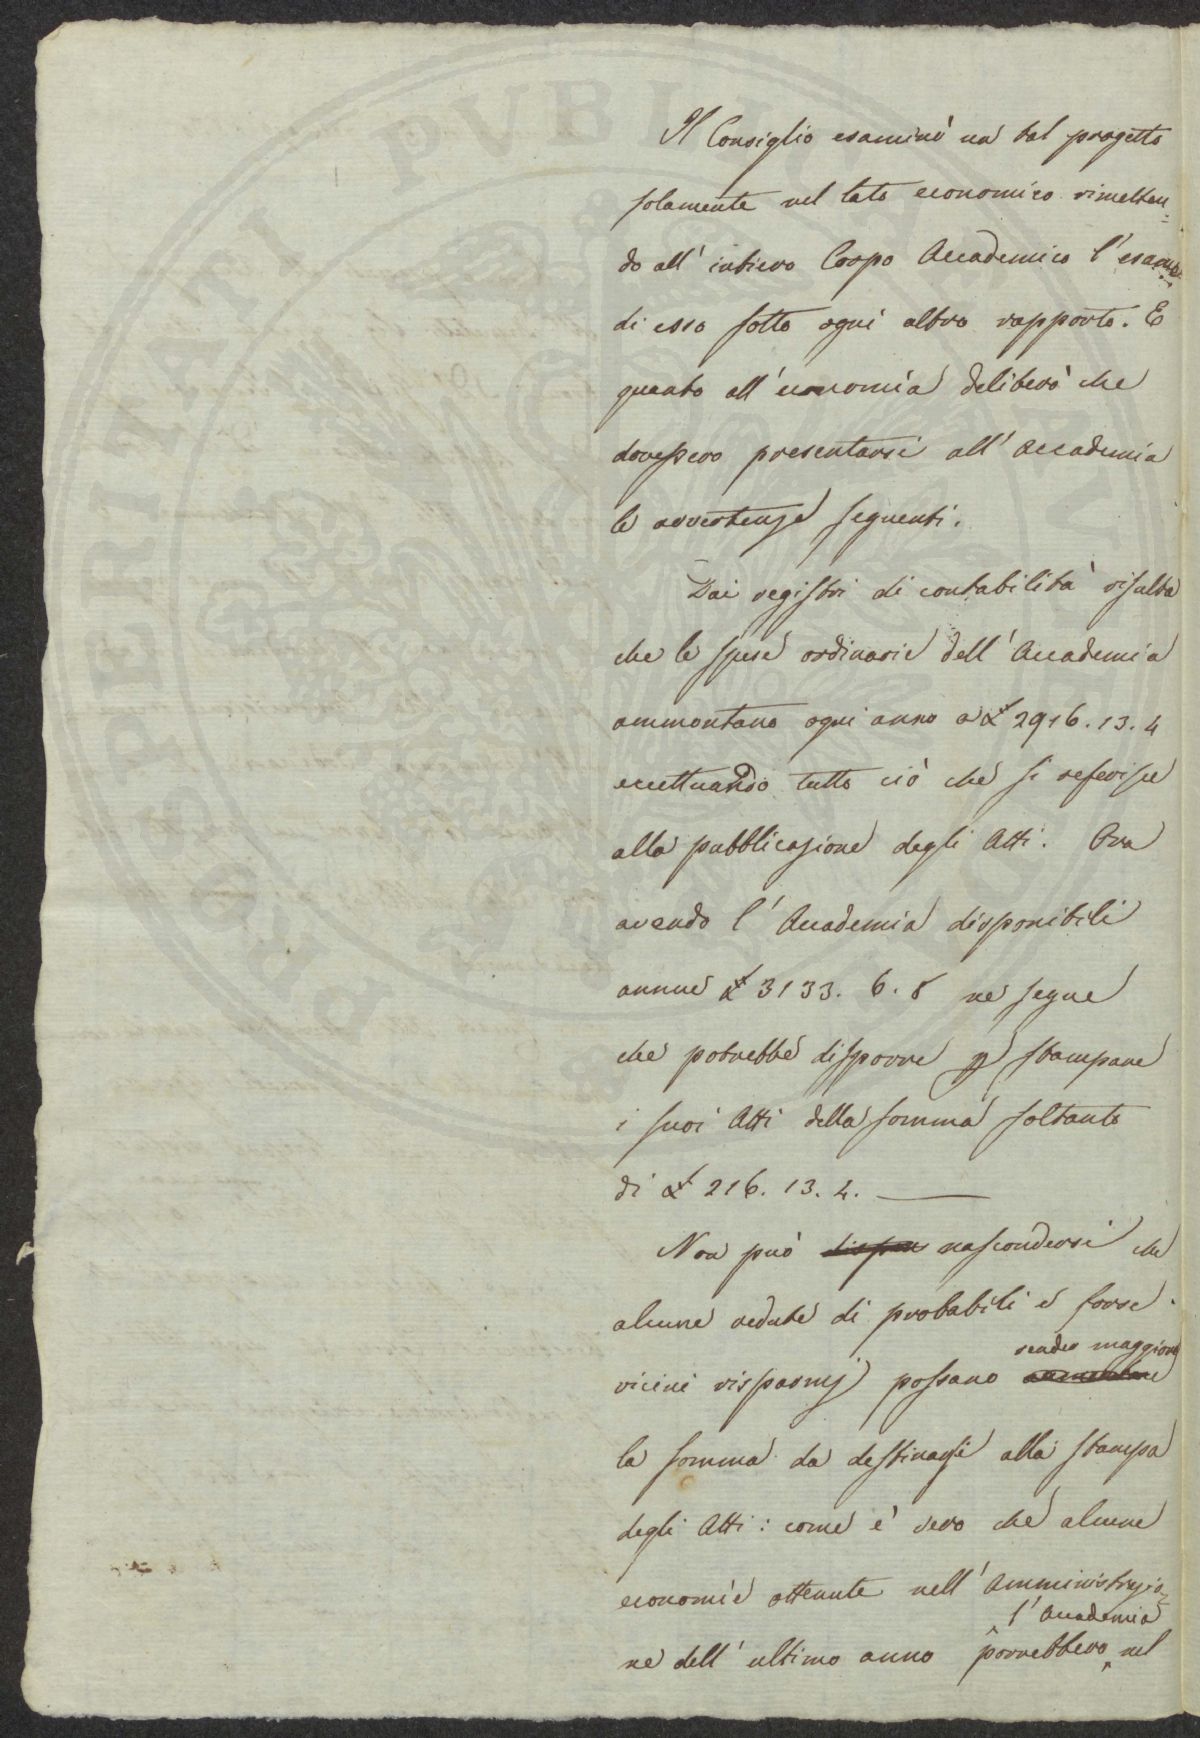 Il Consiglio esaminò un tal progetto
solamente nel lato economico rimetten=
do all' intiero Corpo Accademico l'esame
di esso sotto ogni altro rapporto. E
quanto all' economia deliberò che
dovessero presentarsi all' Accademia
le avvertenze seguenti.
Dai registri di contabilità risulta
che le spese ordinarie dell' Accademia
ammontano ogni anno a £ 2916. 13. 4
eccettuando tutto ciò che si referisce
alla pubblicazione degli Atti. Ora
avendo l' Accademia disponibili
annue £ 3133. 6. 8 ne segue
che potrebbe disporre p stampare
i suoi Atti della somma soltanto
di £ 216. 13. 4.
Non può nascondersi che
alcune vedute di probabili e forse
render maggiore
vicini risparmj possano aumentare
la somma da destinarsi alla stampa
degli Atti: come è vero che alcune
economie ottenute nell' Amministrazio
l' Accademia
ne dell' ultimo anno porrebbero nel